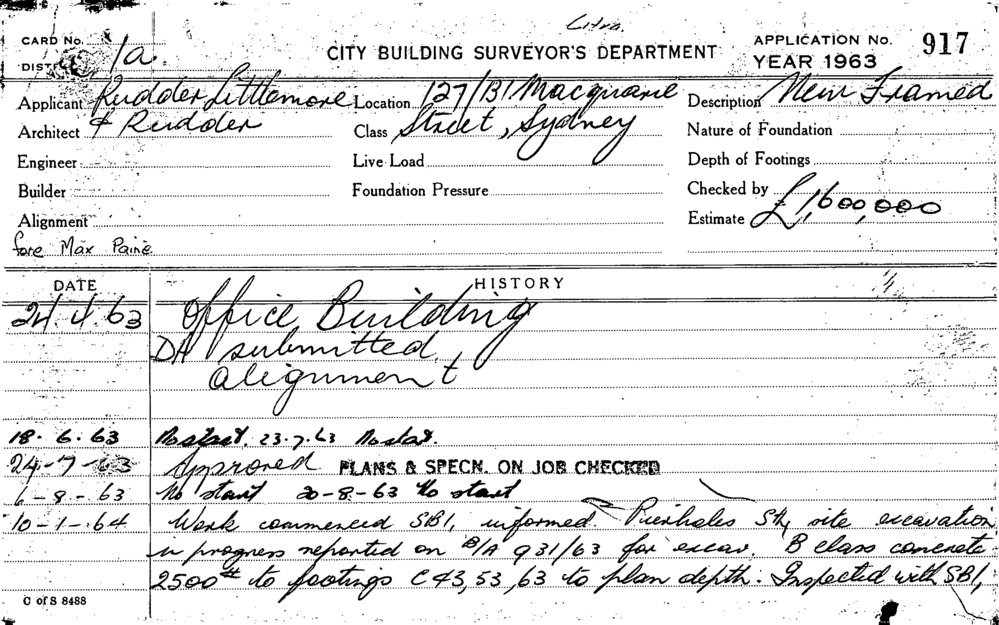 CARD No. 1a. CITY BUILDING SURVEYOR'S DEPARTMENT APPLICATION No. 917
YEAR 1963
Applicant Rudder Littlemore Location 127/131 Macquarie Description New Framed
Architect & Rudder Class Street, Sydney Nature of Foundation
Engineer Live Load Depth of Footings
Builder Foundation Pressure Checked by
Alignment Estimate £1,600,000
fore Max Paine
DATE HISTORY
24.4.63 Office Building
DA submitted
alignment
18.6.63 No start. 23.7.63 No start.
24-7-63 Approved PLANS & SPECN. ON JOB CHECKED
6-8-63 No start 20-8-63 No start
10-1-64 Work commenced SBI, informed. Pierholes site excavation
in progress reported on B/A 931/63 for excav. B class concrete
2500# to footings C43,53,63 to plan depth. Inspected with SBI,
C of S 8488